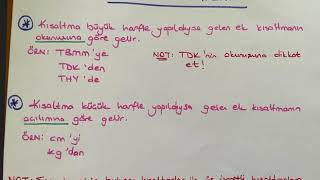 * Kısaltma büyük harfle yapıldıysa gelen ek kısaltmanın
okunuşuna göre gelir.
ÖRN: TBMM'ye
TDK'den
THY'de
NOT: TDK'nin okunuşuna dikkat
et!
* Kısaltma küçük harfle yapıldıysa gelen ek kısaltmanın
açılımına göre gelir.
ÖRN: cm'yi
kg'dan
NOT: